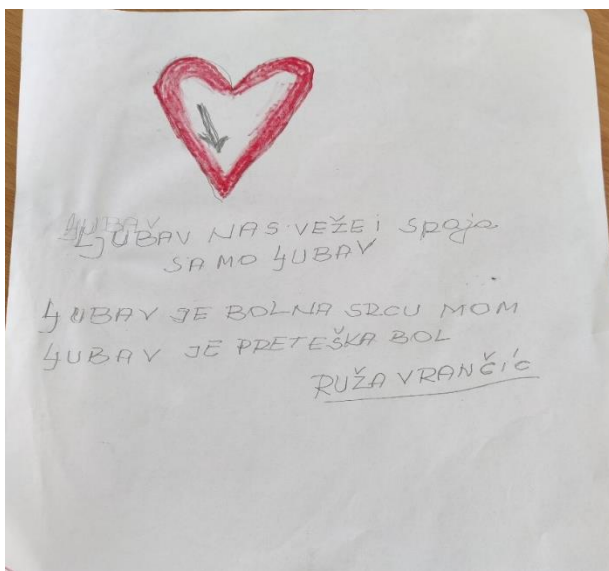 LJUBAV
LJUBAV NAS VEŽE i spaja
SAMO LJUBAV
LJUBAV JE BOLNA SRCU MOM
LJUBAV JE PRETEŠKA BOL
RUŽA VRANČIĆ